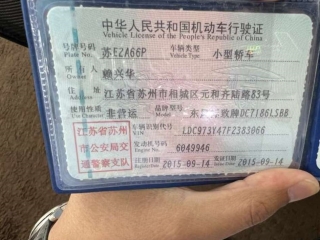 中华人民共和国机动车行驶证
Vehicle License of the People's Republic of China
号牌号码 苏E2A66P 车辆类型 小型轿车
Plate No. Vehicle Type
所有人 赖兴华
Owner
住址 江苏省苏州市相城区元和齐陆路83号
Address
使用性质 非营运 品牌型号 东风雪铁龙牌DC7186LSBB
Use Character Model
江苏省苏州 车辆识别代号 LDC973Y47F2383066
VIN
市公安局交 发动机号码 6049946
Engine No.
通警察支队 注册日期 2015-09-14 发证日期 2015-09-14
Register Date Issue Date